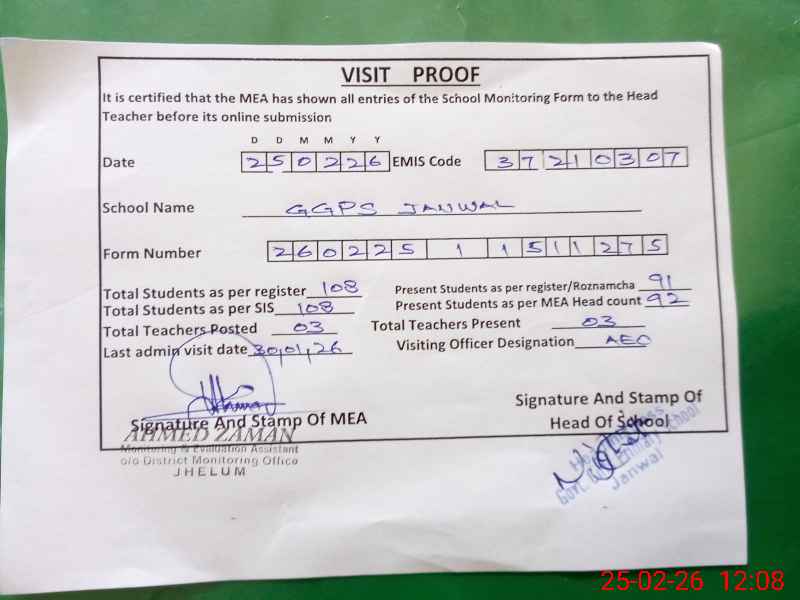 VISIT PROOF
It is certified that the MEA has shown all entries of the School Monitoring Form to the Head
Teacher before its online submission
D D M M Y Y
Date 250226 EMIS Code 37210307
School Name GGPS JANWAL
Form Number 260225 1 1511275
Total Students as per register 108 Present Students as per register/Roznamcha 91
Total Students as per SIS 108 Present Students as per MEA Head count 92
Total Teachers Posted 03 Total Teachers Present 03
Last admin visit date 30,01,26 Visiting Officer Designation AEO
Signature And Stamp Of MEA
Signature And Stamp Of
Head Of School
AHMED ZAMAN
Monitoring & Evaluation Assistant
o/o District Monitoring Office
JHELUM
Govt. Primary School
Janwal
25-02-26 12:08